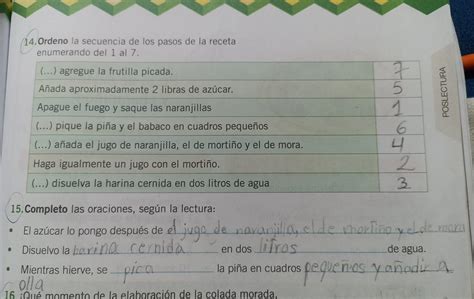 14. Ordeno la secuencia de los pasos de la receta
enumerando del 1 al 7.
(...) agregue la frutilla picada. 7
Añada aproximadamente 2 libras de azúcar. 5
Apague el fuego y saque las naranjillas 1
(...) pique la piña y el babaco en cuadros pequeños 6
(...) añada el jugo de naranjilla, el de mortiño y el de mora. 4
Haga igualmente un jugo con el mortiño. 2
(...) disuelva la harina cernida en dos litros de agua 3
POSLECTURA
15. Completo las oraciones, según la lectura:
• El azúcar lo pongo después de el jugo de naranjilla, el de mortiño y el de mora
• Disuelvo la harina cernida en dos litros de agua.
• Mientras hierve, se pica la piña en cuadros pequeños y añadir a
olla
16 ¿Qué momento de la elaboración de la colada morada,